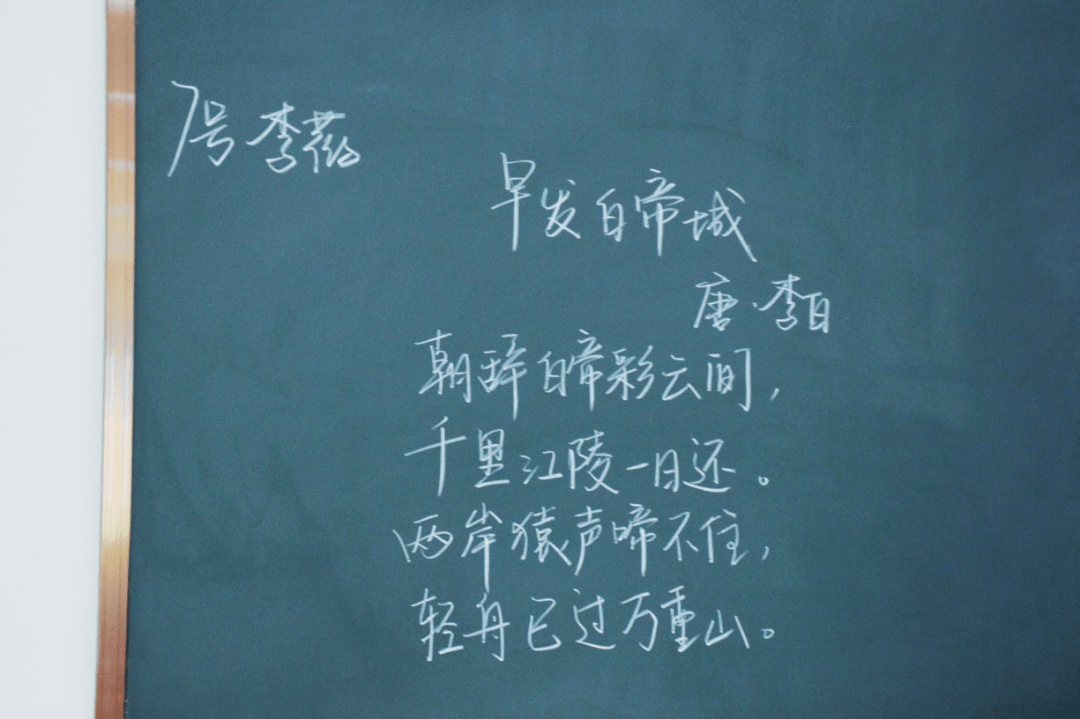 7号 李薇
早发白帝城
唐·李白
朝辞白帝彩云间，
千里江陵一日还。
两岸猿声啼不住，
轻舟已过万重山。